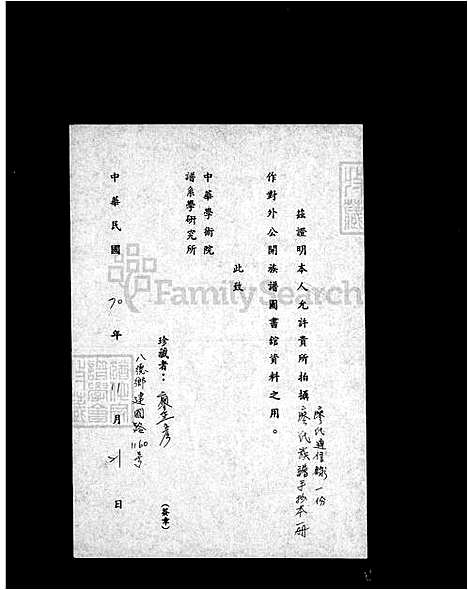 茲證明本人允許貴所拍攝廖氏族譜手抄本一册
廖氏通信錄一份
作對外公開族譜圖書館資料之用。
此致
中華學術院
譜系學研究所
珍藏者:廖
八德鄉建國路1160号
(簽章)
中華民國 70 年 11 月 日
FamilySearch